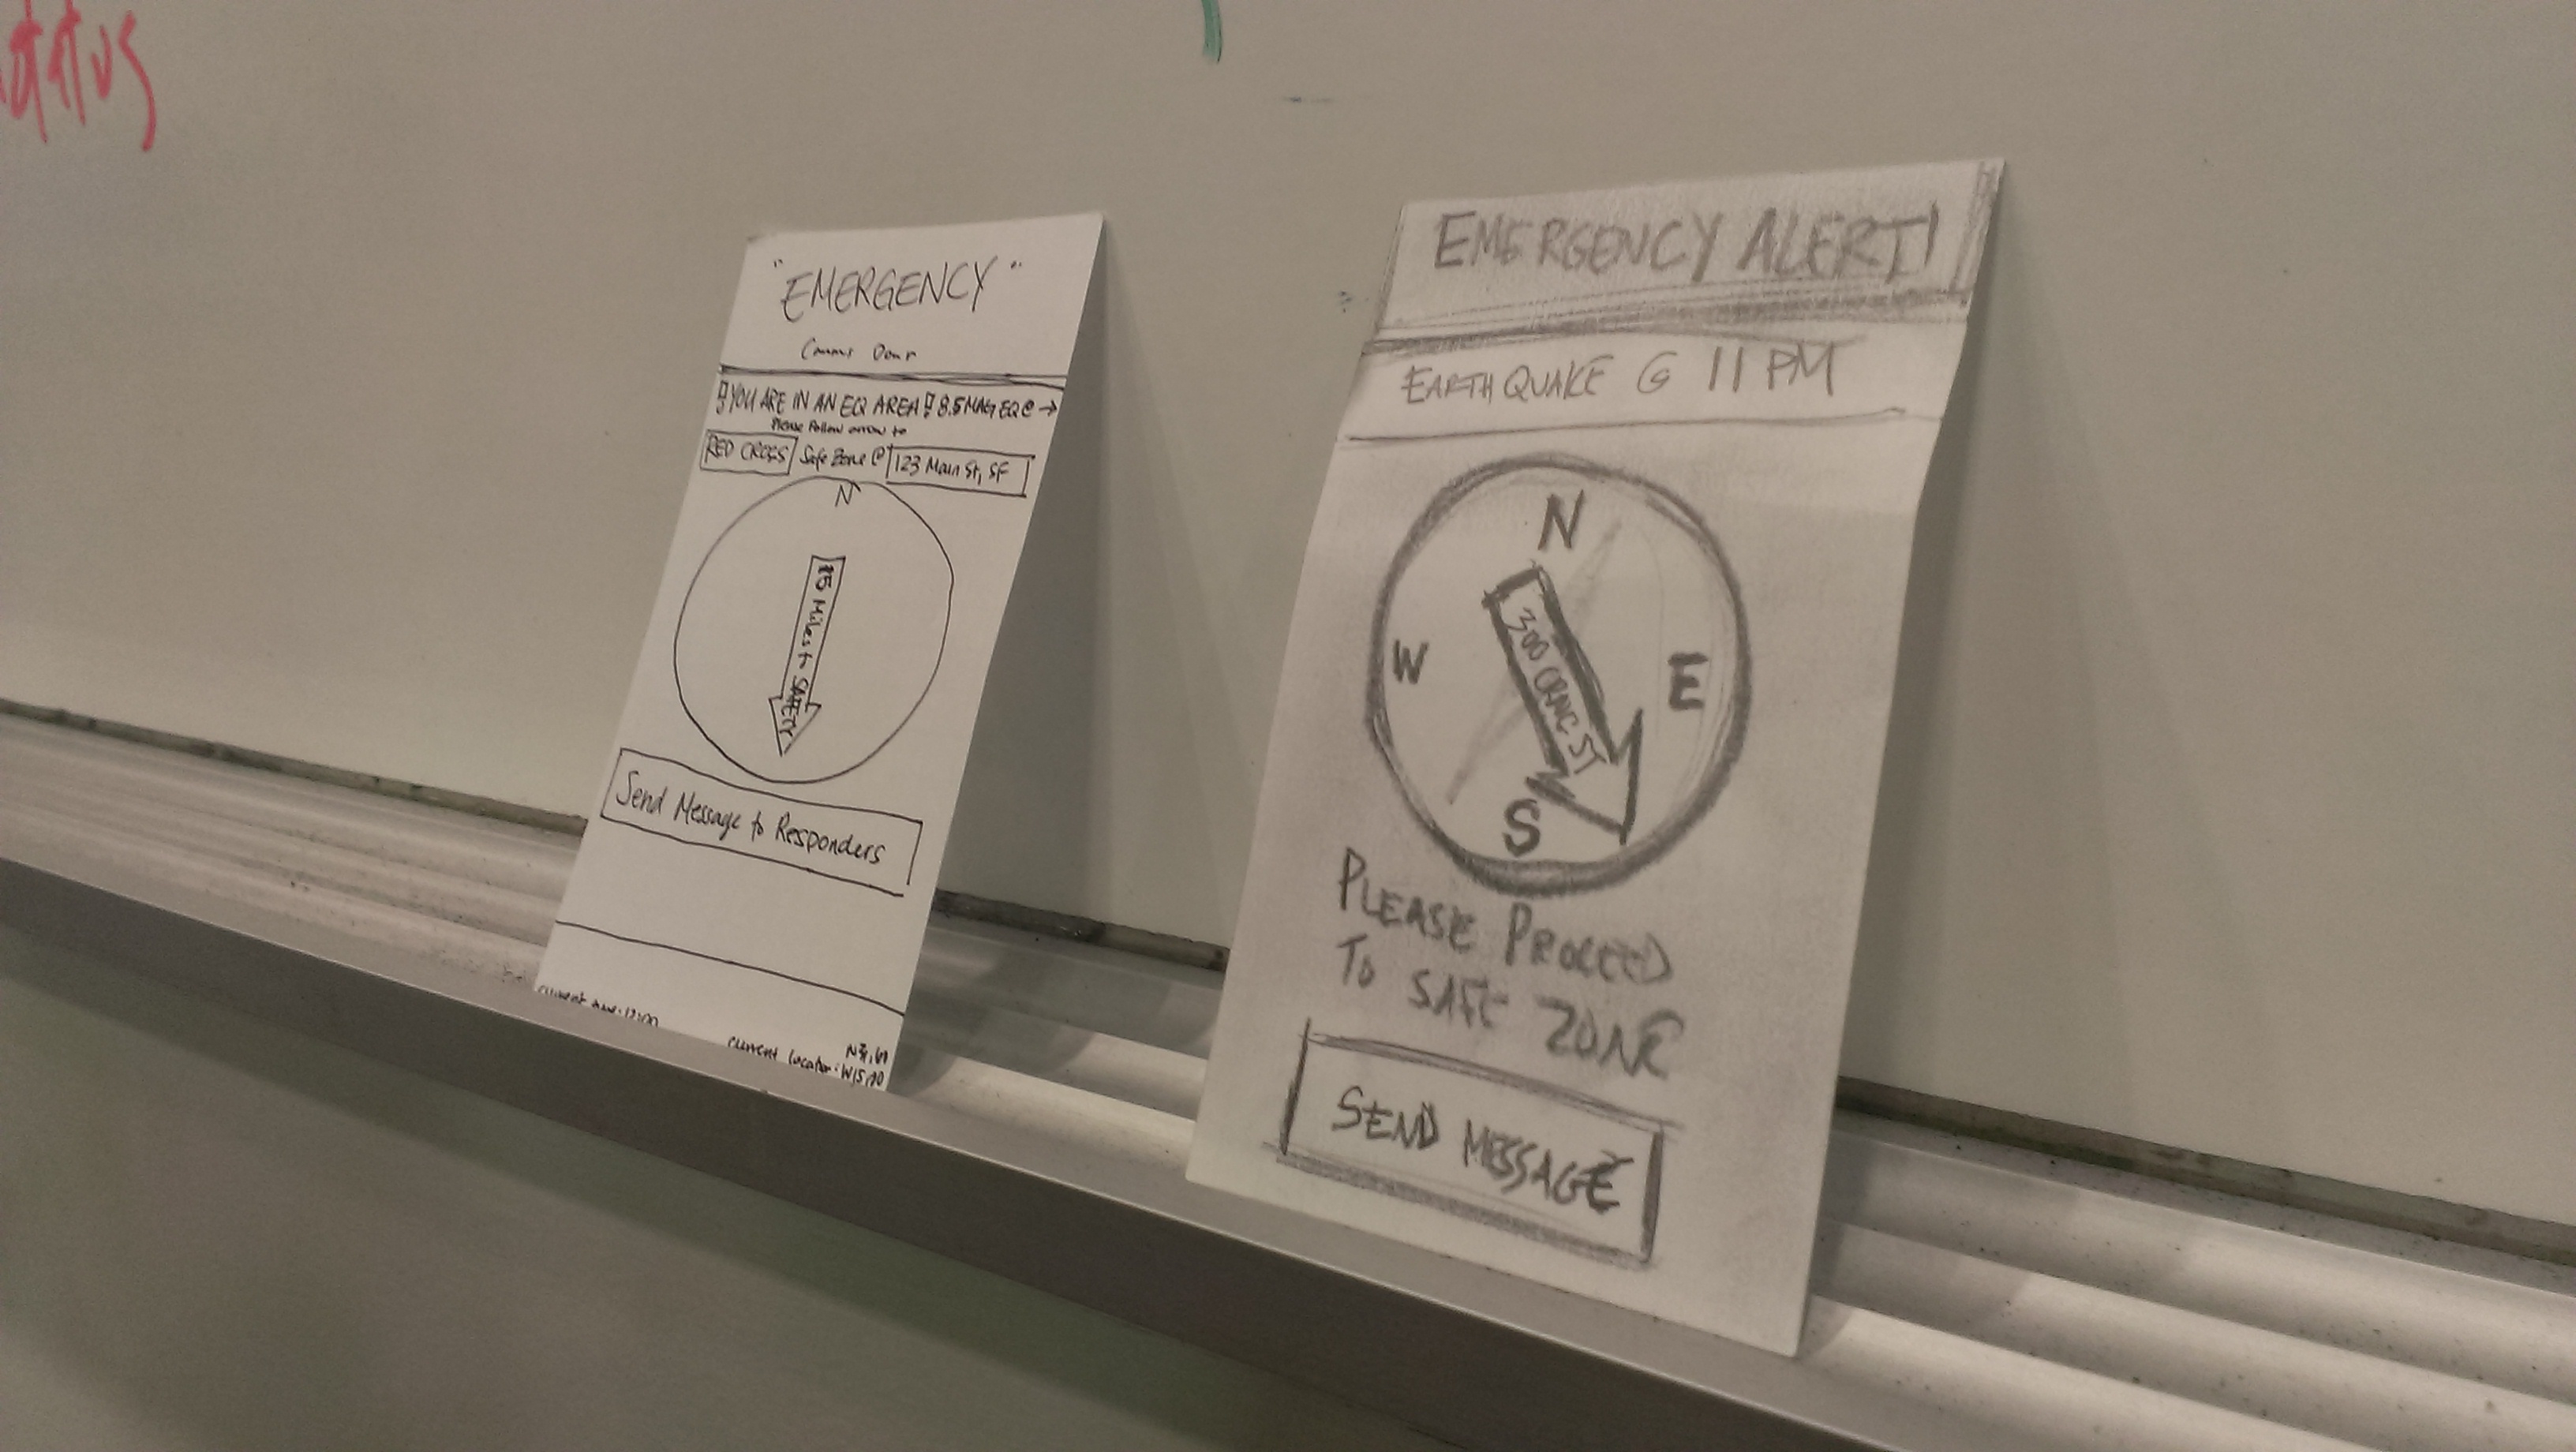 "EMERGENCY"
Comms Down
!! YOU ARE IN AN EQ AREA !! 8.5 MAG EQ @ →
Please follow arrow to
RED CROSS Safe Zone @ 123 Main St, SF
N
15 Miles + SAFETY
Send Message to Responders
current time: 12:00
current location:
EMERGENCY ALERT!
EARTHQUAKE @ 11 PM
N
W
E
S
300 ST
PLEASE PROCEED
TO SAFE ZONE
SEND MESSAGE